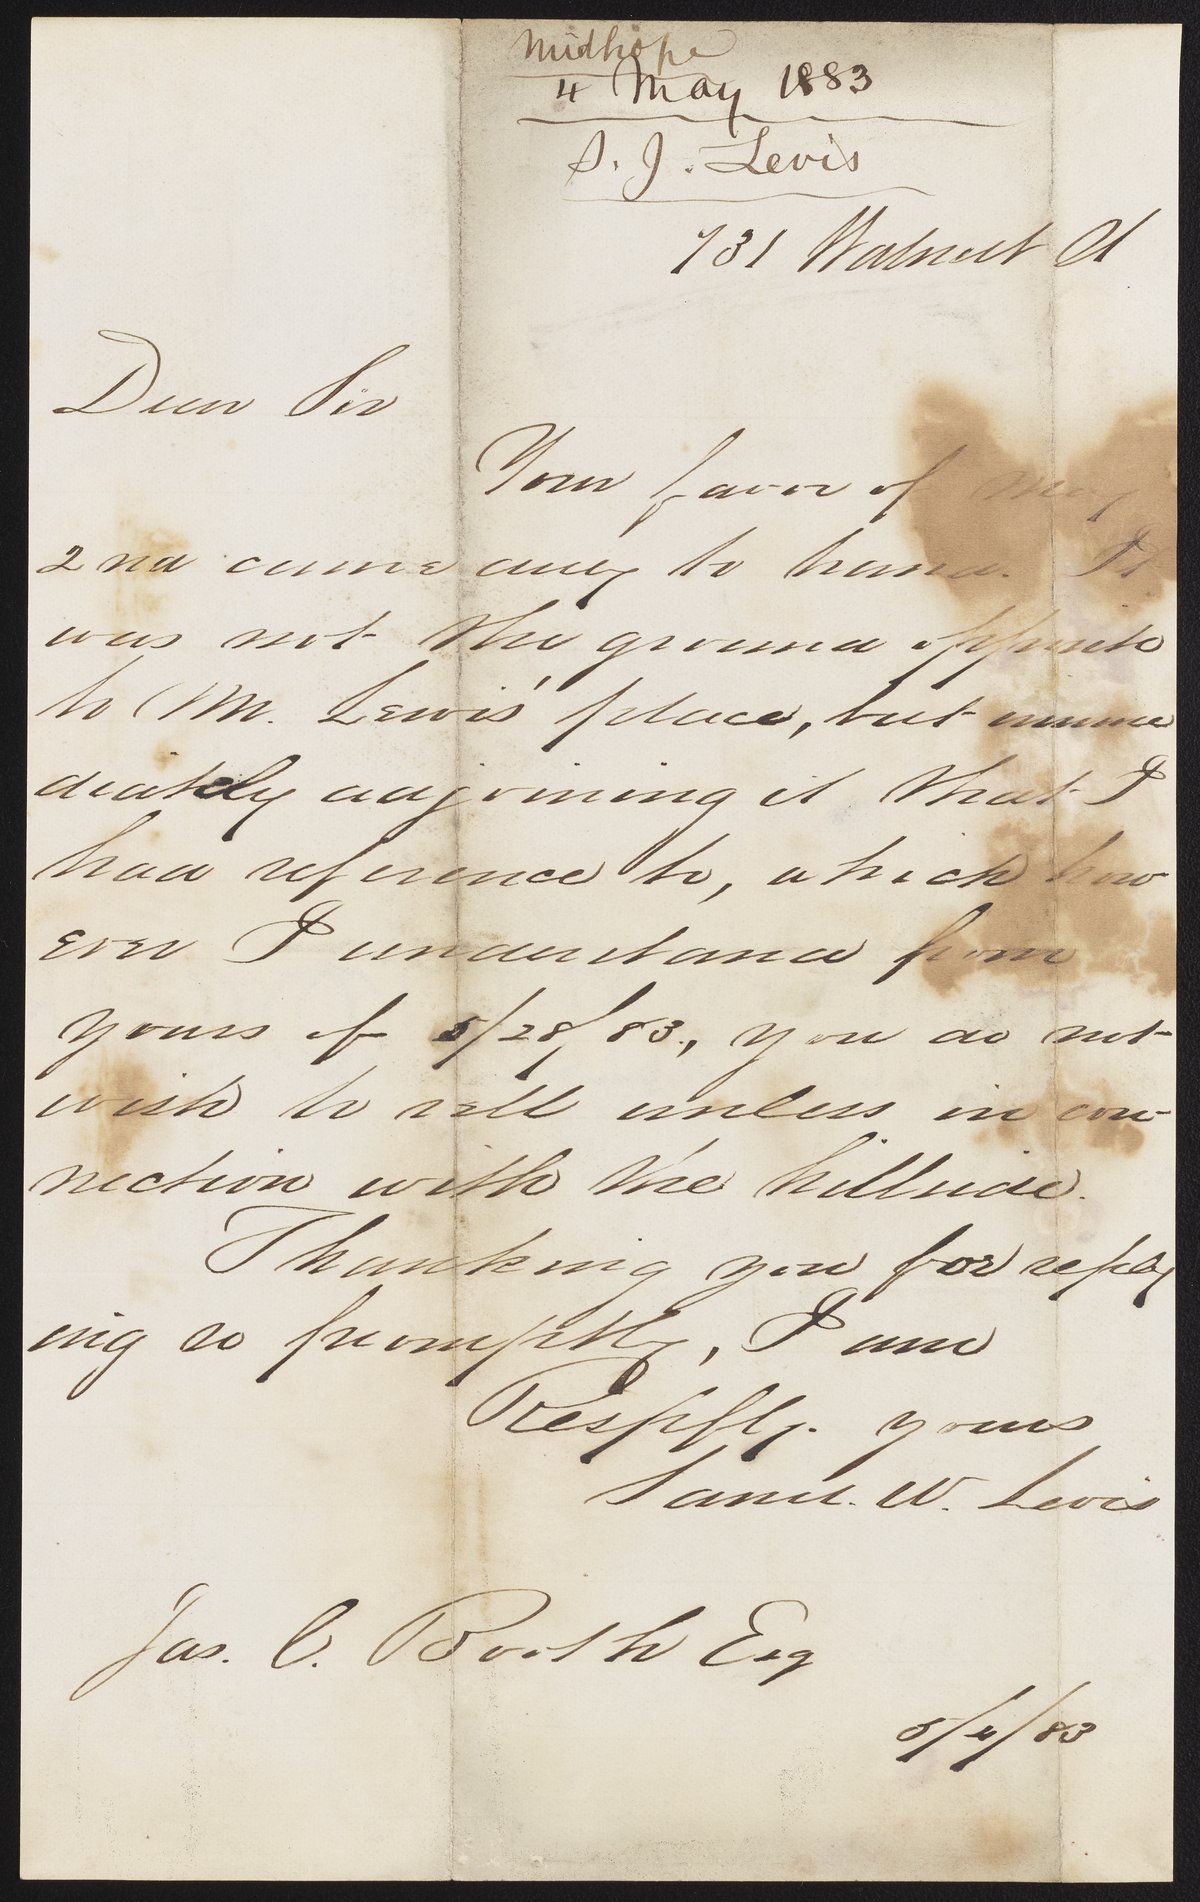 Midhope
4 May 1883
S. J. Levis
731 Walnut St
Dear Sir
Your favor of May
2nd came duly to hand. It
was not the ground opposite
to Mr. Lewis' place, but imme
diately adjoining it that I
had reference to, which how
ever I understand from
yours of 5/28/83., you do not
wish to sell unless in con-
nection with the hillside.
Thanking you for reply
ing so promptly, I am
Respfly. yours
Saml. W. Levis
Jas. C. Booth Esq
5/4/83